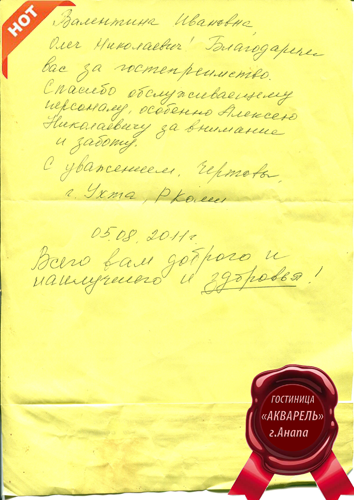 HOT
Валентина Ивановна
Олег Николаевич! Благодарим
вас за гостеприимство.
Спасибо обслуживающему
персоналу, особенно Алексею
Николаевичу за внимание
и заботу.
С уважением, Чертовы,
г. Ухта, РКоми
05.08.2011г
Всего вам доброго и
наилучшего и здоровья!
ГОСТИНИЦА
«АКВАРЕЛЬ»
г.Анапа